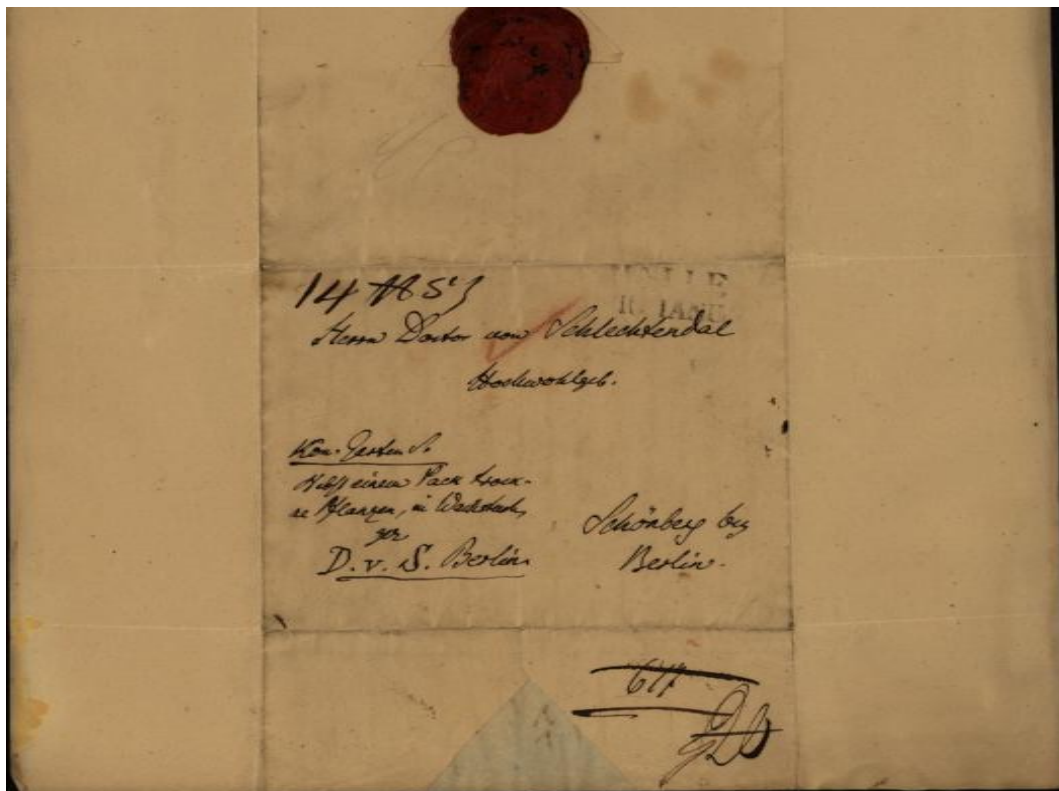 HALLE
11. IANR
14 ℔ 5
Herrn Doctor von Schlechtendal
Hochwohlgeb.
Nebst einem Pack trock-
ne Pflanzen, in Wachstuch,
D. v. S. Berlin
Schönberg bey
Berlin.